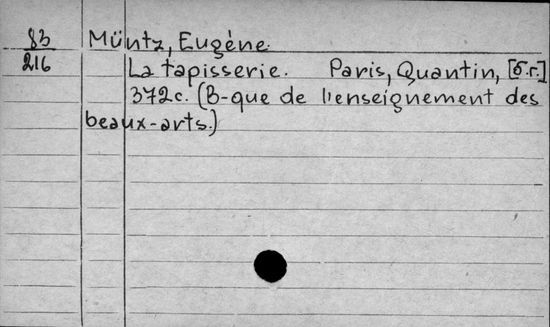 83
216
Müntz, Eugène.
La tapisserie. Paris, Quantin, [б.г.]
372c. (B-que de l'enseignement des
beaux-arts.)